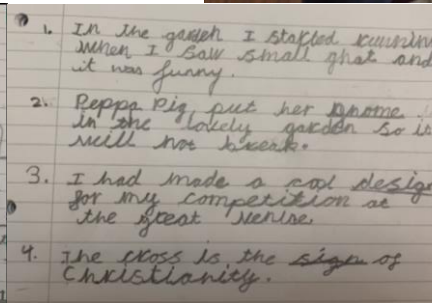 1. In the garden I started running
when I saw small gnat and
it was funny.
2. Peppa Pig put her gnome
in the lovely garden so it
will not break.
3. I had made a cool design
for my competition at
the great
4. The cross is the sign of
Christianity.